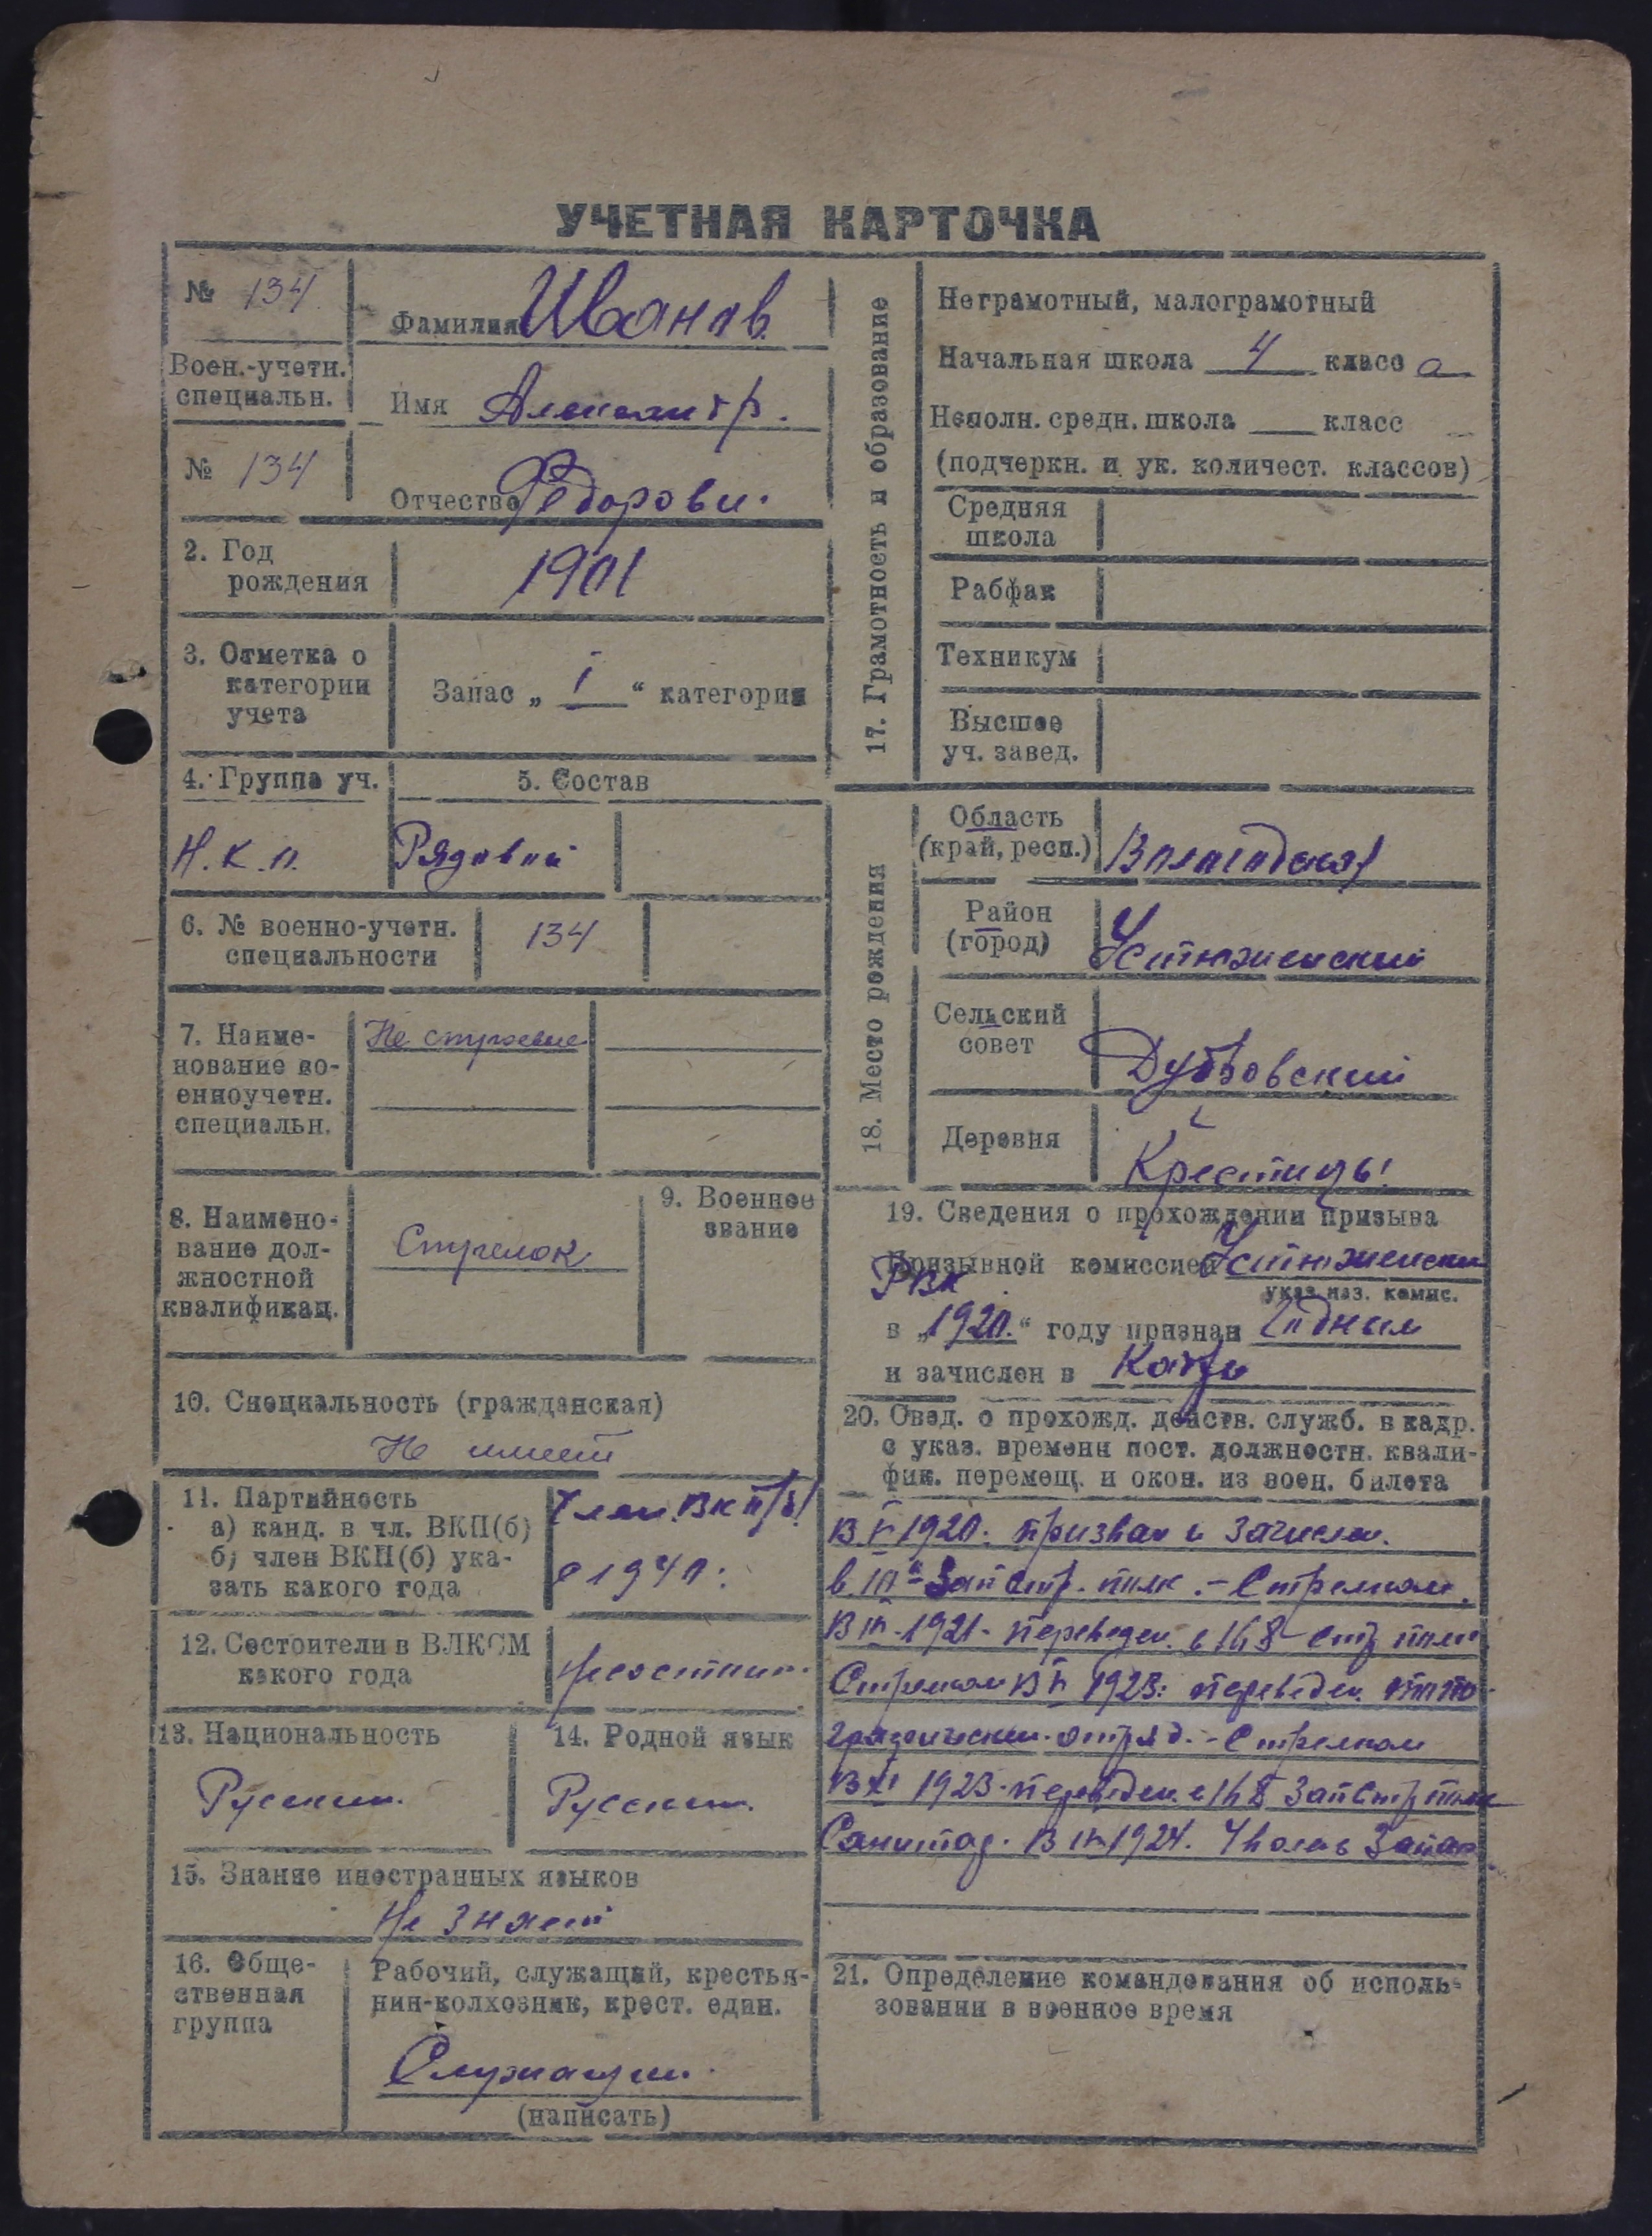 УЧЕТНАЯ КАРТОЧКА
№ 134
Фамилия Иванов
Воен.-учетн.
специальн.
Имя Александр.
№ 134
Отчество Федорови.
2. Год
рождения
1901
3. Отметка о
категории
учета
Запас „ I “ категории
4. Группа уч.
5. Состав
Н.К.П.
Рядовой
6. № военно-учетн.
специальности
134
7. Наиме-
нование во-
енноучетн.
специальн.
Не строевые
8. Наимено-
вание дол-
жностной
квалификац.
Стрелок
9. Военное
звание
10. Специальность (гражданская)
Не имеет
11. Партийность
а) канд. в чл. ВКП(б)
б) член ВКП(б) ука-
зать какого года
Член ВКП/б/
с 1940.
12. Состоители в ВЛКСМ
какого года
13. Национальность
Русский.
14. Родной язык
Русский.
15. Знание иностранных языков
Не знает
16. Обще-
ственная
группа
Рабочий, служащий, крестья-
нин-колхозник, крест. един.
Служащий.
(написать)
17. Грамотность и образование
Неграмотный, малограмотный
Начальная школа 4 класс а
Неполн. средн. школа ___ класс
(подчеркн. и ук. количест. классов)
Средняя
школа
Рабфак
Техникум
Высшее
уч. завед.
18. Место рождения
Область
(край, респ.)
Вологодская
Район
(город)
Устюженский
Сельский
совет
Дубровский
Деревня
19. Сведения о прохождении призыва
Призывной комиссией Устюженски
РВК
указ. наз. комис.
в „1920.“ году признан Годным
и зачислен в
20. Свед. о прохожд. действ. служб. в кадр.
с указ. времени пост. должностн. квали-
фик. перемещ. и окон. из воен. билета
1920. призван и зачислен.
Зап Стр. полк. - Стрелком.
1921. переведен в 168 Стр полк
Стрелком 1923: переведен
отряд. - Стрелком
В XI 1923. переведен в 168 Зап Стр полк
Санитар. 1924. Уволен в Запас
21. Определение командования об исполь-
зовании в военное время